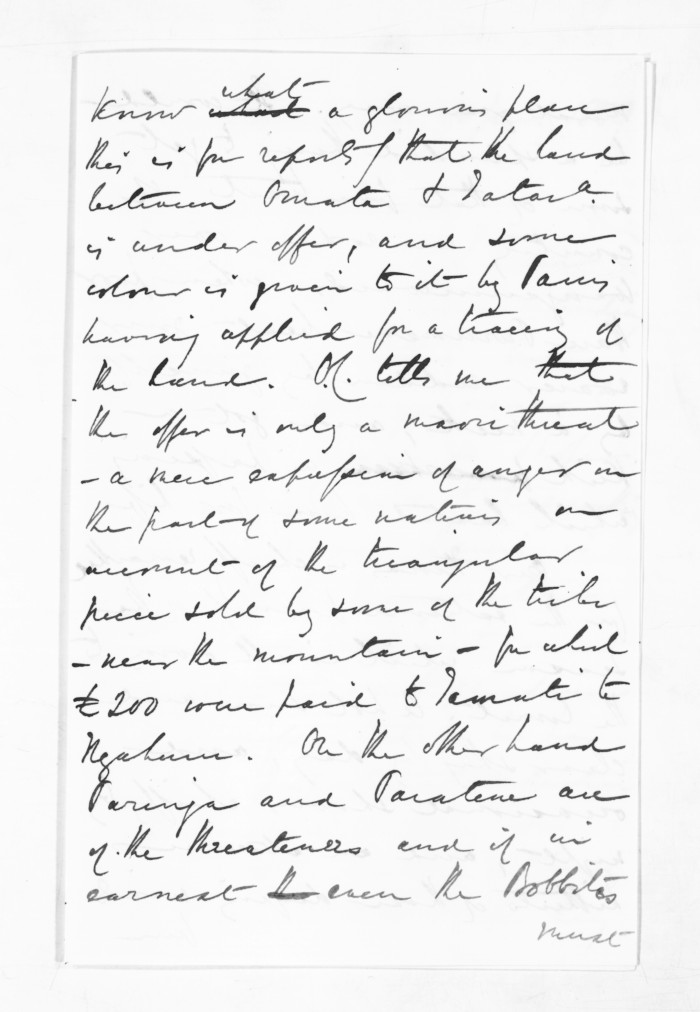 know what what a glorious place
this is for reports that the land
between Omata & Tatara
is under offer, and some
colour is given to it by Parris
having applied for a tracing of
the land. O.C. tells me that
the offer is only a maori threat
- a mere expression of anger on
the part of some natives on
account of the triangular
piece sold by some of the tribe
- near the mountain - for which
£200 were paid to Tamati te
Ngahuru. On the other hand
Paringa and Paratene are
of the threateners and if in
earnest the even the Bobbites
must